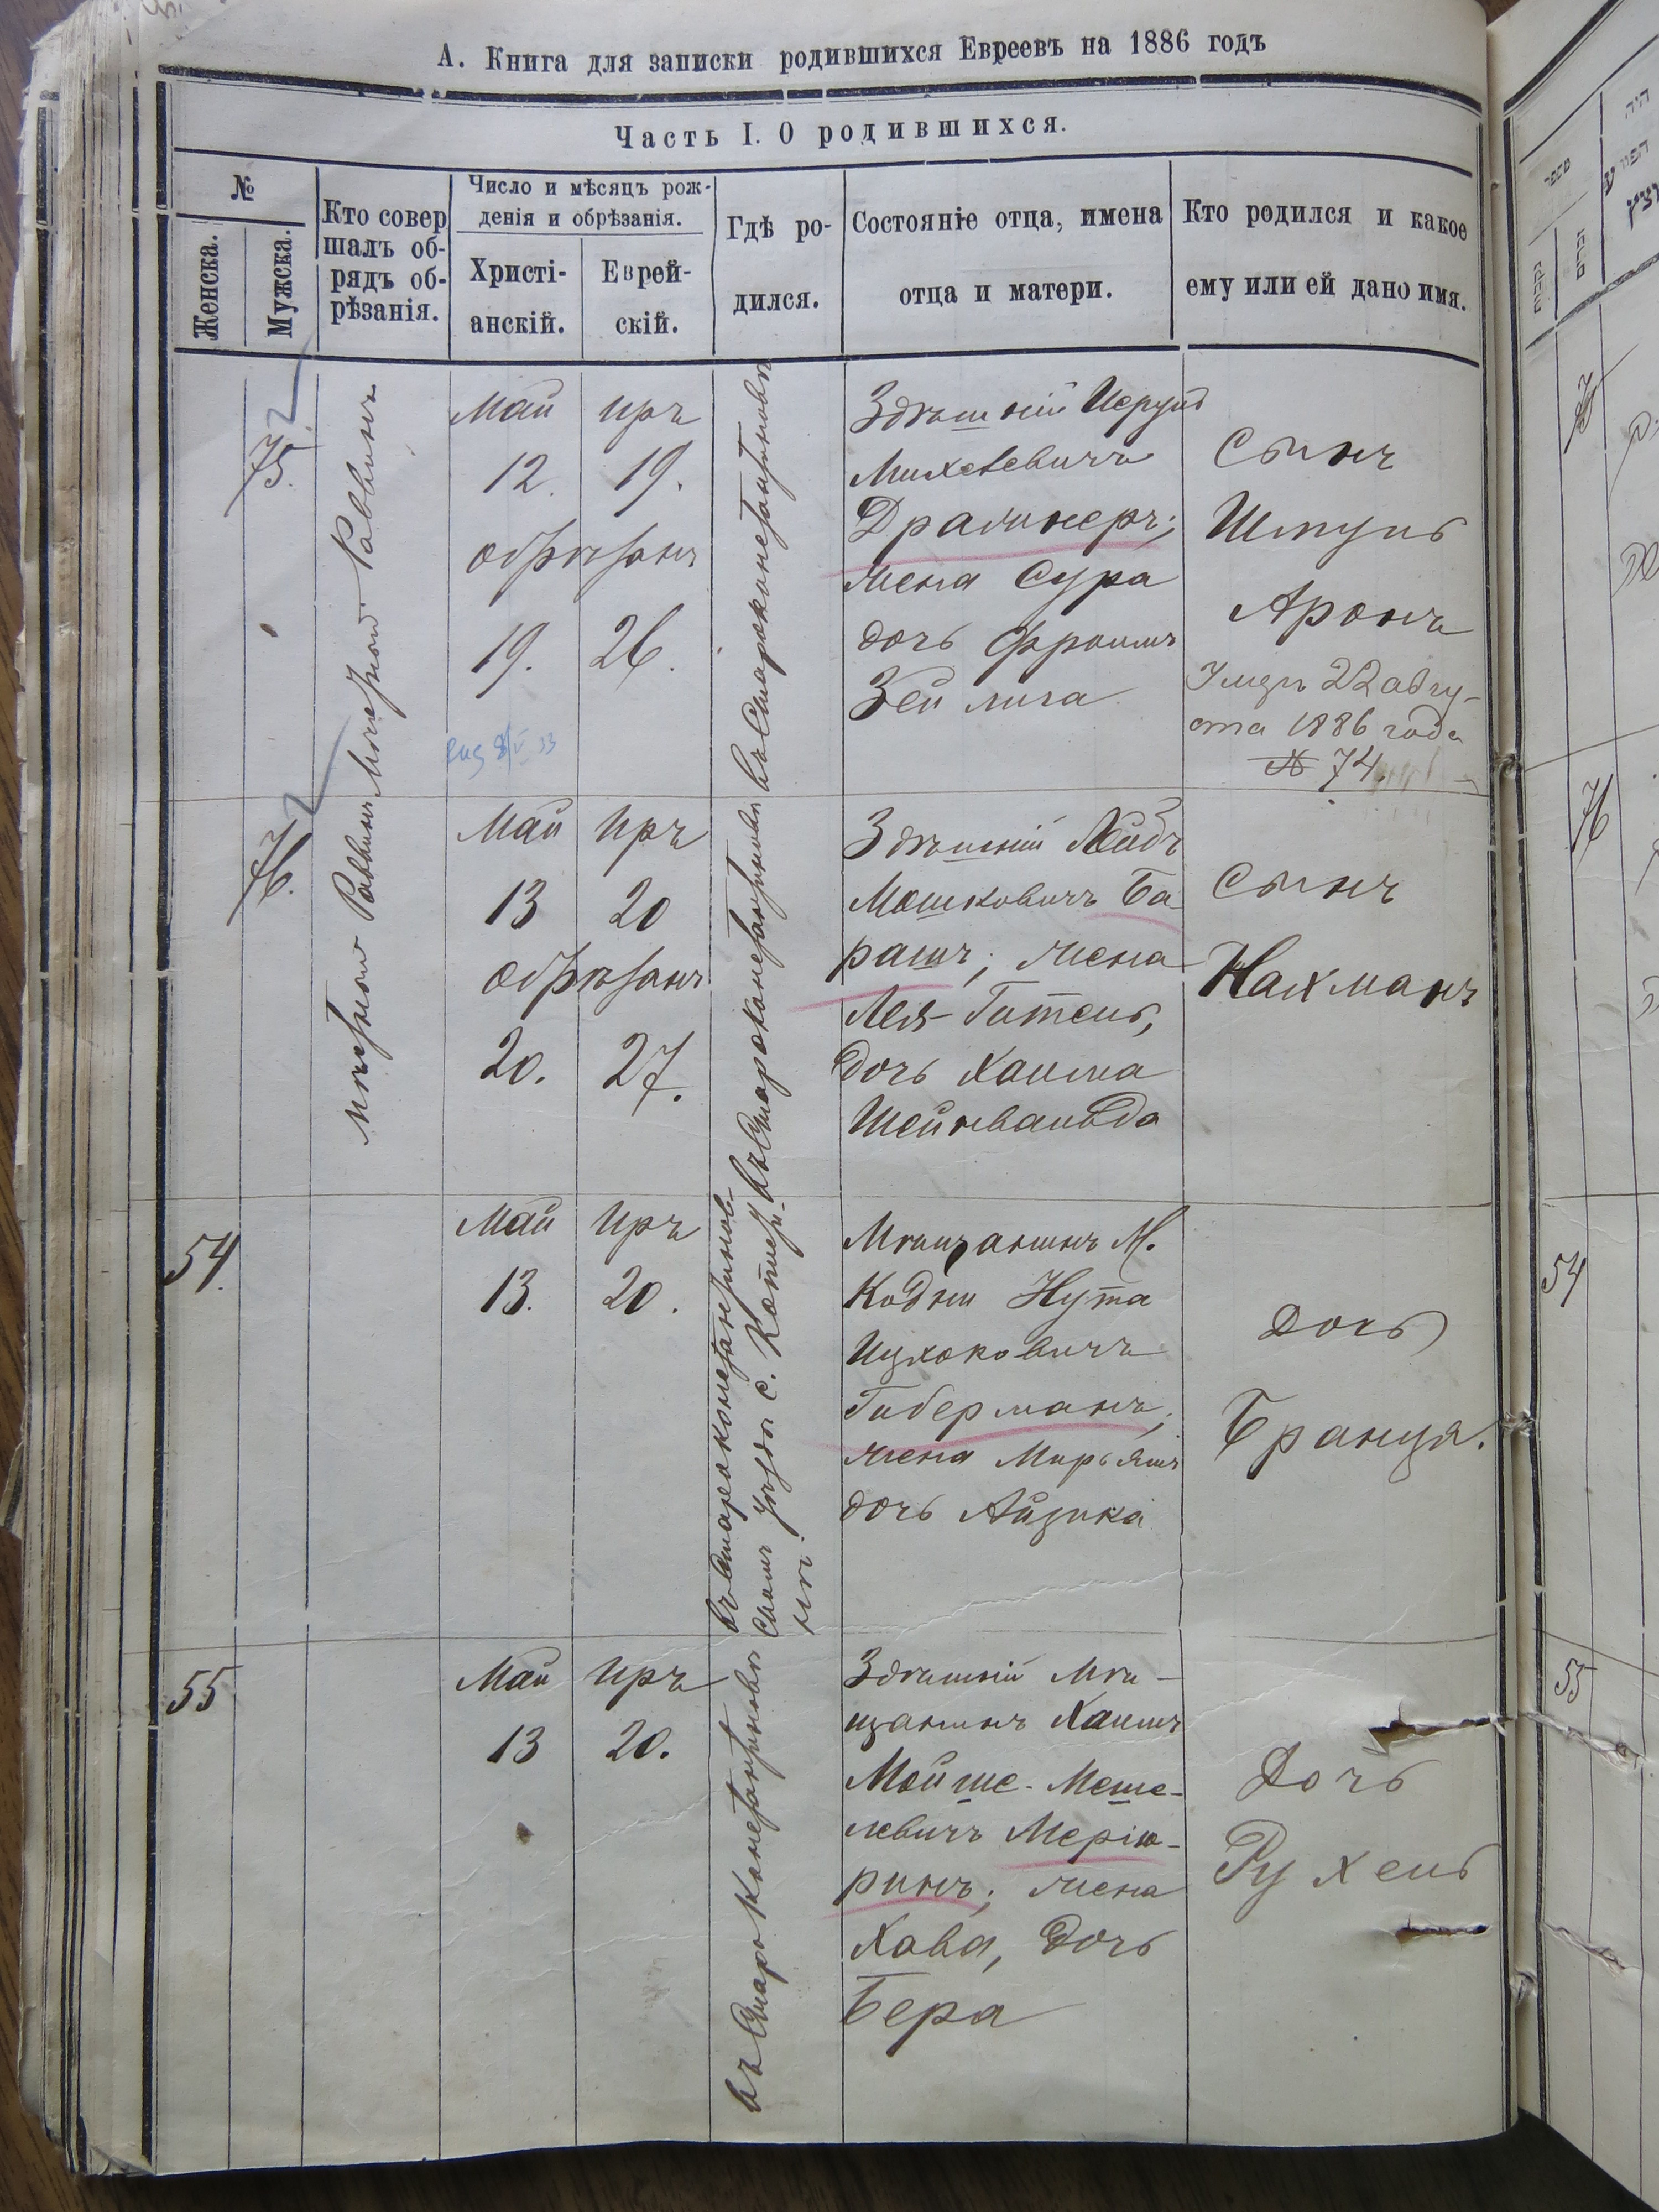 А. Книга для записки родившихся Евреевъ на 1886 годъ
Часть I. О родившихся.
№
Женска.
Мужска.
Кто совер
шалъ об-
рядъ об-
рѣзанія.
Число и мѣсяцъ рож-
денія и обрѣзанія.
Христі-
анскій.
Еврей-
скій.
Гдѣ ро-
дился.
Состояніе отца, имена
отца и матери.
Кто родился и какое
ему или ей дано имя.
75.
Мѣстной Раввинъ
Май
12.
Иръ
19.
обрѣзанъ
19.
26.
въ Староконстантиновѣ
Здѣшній
Михелевичъ
жена Сура
дочь Фроимъ
Зейлига
Сынъ
Шмуль
Аронъ
Умеръ 22 авгу-
ста 1886 года
№ 74.
76.
Мѣстной Раввинъ
Май
13
Иръ
20
обрѣзанъ
20.
27.
въ Староконстантиновѣ
Здѣшній Лейбъ
Мошковичъ Ба
рашъ; жена
Лея-Гитель,
дочь Хаима
Шейнвальда
Сынъ
Нахманъ
54.
Май
13.
Иръ
20.
въ Староконстантинов-
скомъ уѣздѣ с.
Мѣщанинъ М.
Кодни Нута
Ицхоковичъ
Гиберманъ;
жена Мирьямъ
дочь Айзика
Дочь
Бранця.
55
Май
13
Иръ
20.
въ Староконстантиновѣ
Здѣшній Мѣ-
щанинъ Хаимъ
Мойше-Меше-
левичъ
ринъ; жена
Хава, Дочь
Бера
Дочь
Рухель
54
55
76